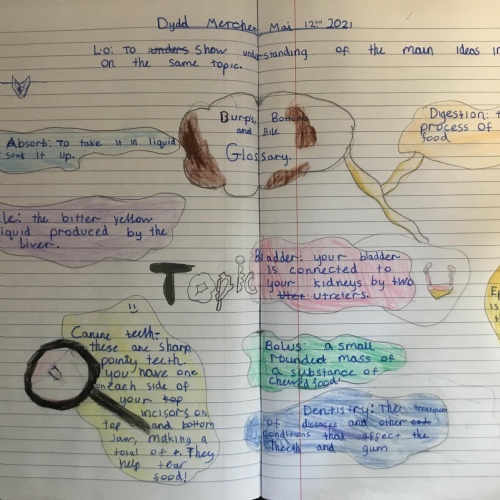 Dydd Mercher, Mai 12th 2021
L.o: To unders show understanding of the main ideas in
on the same topic.
Burps, Bottoms
and Bile
Glossary.
Absorb: To take it in liquid
soak it up.
Digestion: t
process of
food
le: the bitter yellow
iquid produced by the
liver.
Topic
Bladder: your bladder
is connected to
your kidneys by two
utreters.
Canine teeth-
these are sharp
pointy teeth.
you have one
on each side of
your top
incisors on
top and bottom
jaw, making a
total of 4. They
help tear
food!
Bolus: a small
rounded mass of
a substance of
chewed food!
Dentistry: the treatment
of diseases and other
conditions that affect the
theeth and gum
Ep
is
t